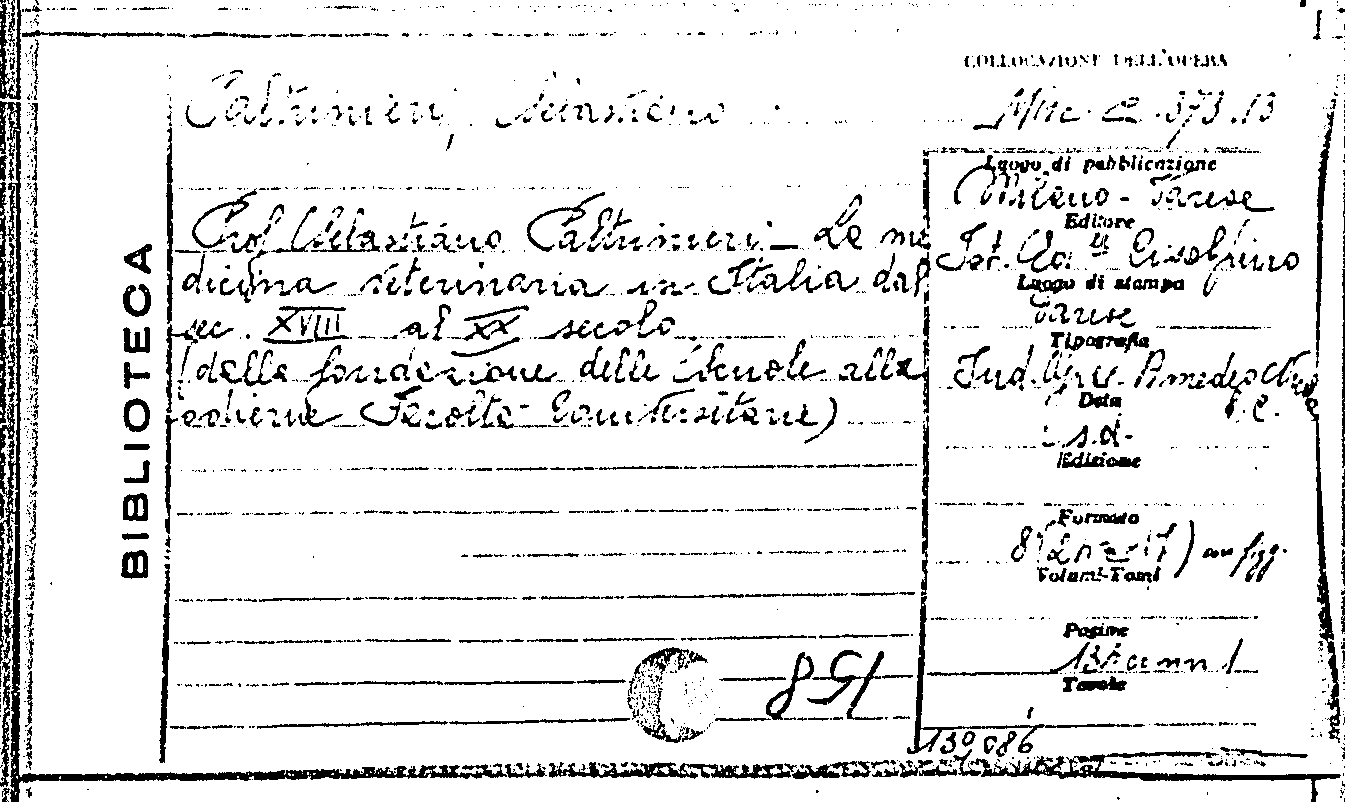 COLLOCAZIONE DELL'OPERA
Paltrinieri, Sebastiano
Misc. 373.13
BIBLIOTECA
Prof. Sebastiano Paltrinieri - La me
dicina veterinaria in Italia dal
sec. XVIII al XX secolo
(dalla fondazione delle Scuole alle
odierne Facoltà Universitarie)
158
Luogo di pubblicazione
Milano - Varese
Editore
Ist. Ed. Cisalpino
Luogo di stampa
Varese
Tipografia
Ind. Amedeo
Data
s.d.
Edizione
Formato
8° con figg.
Volumi-Tomi
Pagine
Tavole
139086